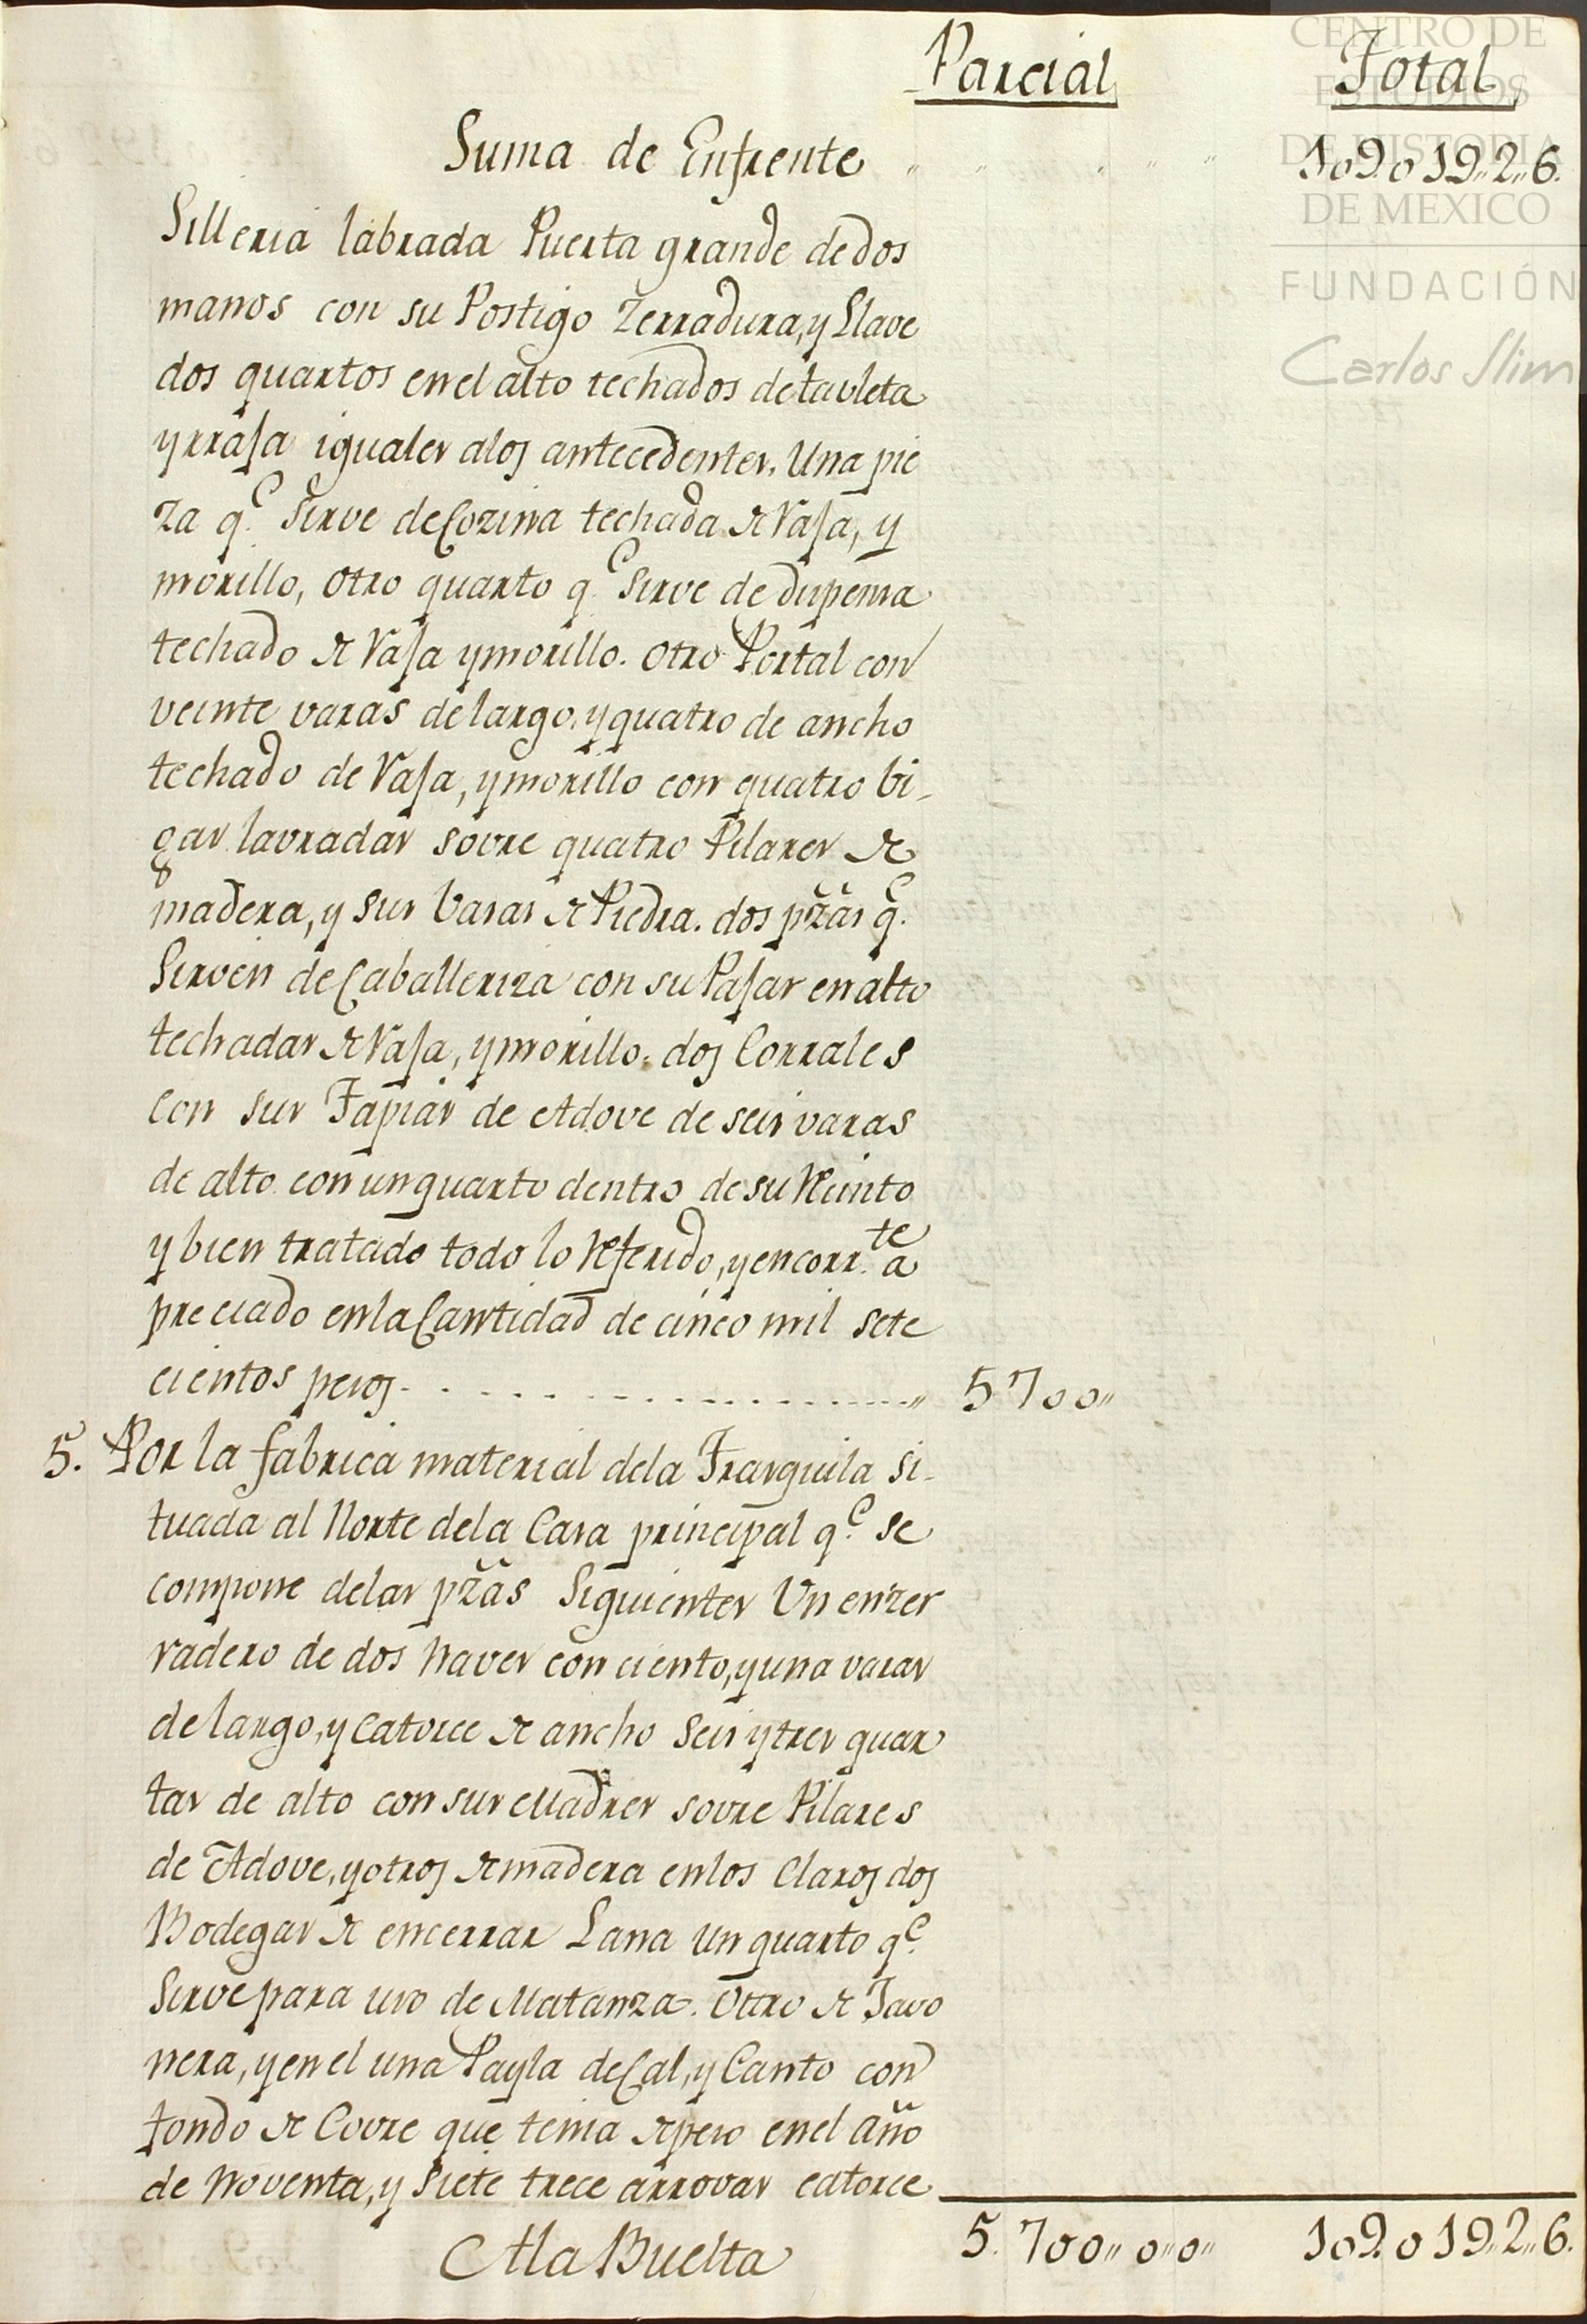 Parcial Total
Suma de Enfrente " " " " " 109.019"2"6.
Silleria labrada Puerta grande de dos
manos con su Postigo Zerradura, y Llave
dos quartos en el alto techados de tavleta
y rraja iguales a los antecedentes. Una pie
za q.e Sirve de Cozina techada de Vaja, y
morillo, otro quarto q.e Sirve de dispensa
techado de Vaja y morillo. otro Portal con
veinte varas de largo, y quatro de ancho
techado de Vaja, y morillo con quatro bi-
gas lavradas sovre quatro Pilares de
madera, y sus basas de Piedra. dos pzãs q.e
Sirven de Caballeriza con su Pajar en alto
techadas de Vaja, y morillo. dos Corrales
con sus Tapias de Adove de seis varas
de alto con un quarto dentro de su Recinto
y bien tratado todo lo Referido, y en corr.te a
preciado en la Cantidad de cinco mil sete
cientos pesos - - - - - - - - - - " 5700"
5. Por la fabrica material de la Trasquila si-
tuada al Norte de la Casa principal q.e se
compone de las pzãs Siguientes Un enzer
radero de dos Naves con ciento, y una varas
de largo, y catorce de ancho seis y tres quar
tas de alto con sus Madres sovre Pilares
de Adove, y otros de madera en los claros dos
Bodegas de encerrar Lana un quarto q.e
Sirve para uso de Matanza. Ottro de Javo
nera, y en el una Payla de Cal, y Canto con
fondo de Covre que tenia de peso en el año
de noventa, y Siete trece arrovas catorce
A la Buelta 5.700"0"0" 109.019"2"6.
CENTRO DE
ESTUDIOS
DE HISTORIA
DE MEXICO
FUNDACIÓN
Carlos Slim